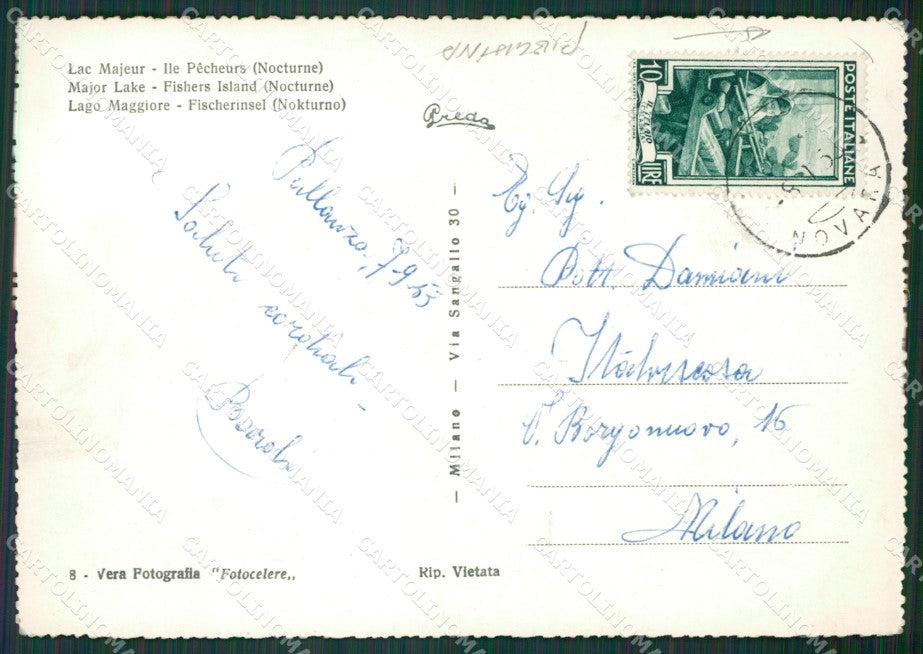 Lac Majeur - Ile Pêcheurs (Nocturne)
Major Lake - Fishers Island (Nocturne)
Lago Maggiore - Fischerinsel (Nokturno)
Pallanza, 7-9-53
Saluti cordiali
Breda
— Milano — Via Sangallo 30 —
10
LIRE
POSTE ITALIANE
NOVARA
Eg. Sig.
Dott. Damiani
Italviscosa
V. Borgonuovo, 16
Milano
8 - Vera Fotografia "Fotocelere„
Rip. Vietata
CARTOLINOMANIA